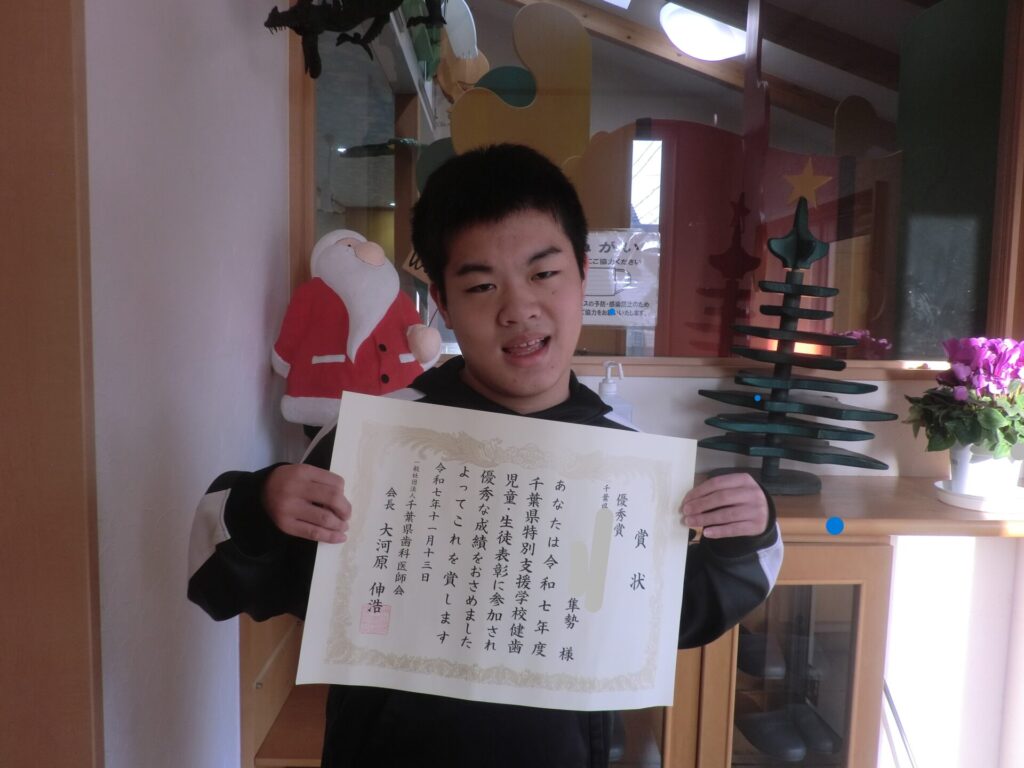 賞状
優秀賞
千葉県
隼勢 様
あなたは令和七年度
千葉県特別支援学校健歯
児童・生徒表彰に参加され
優秀な成績をおさめました
よってこれを賞します
令和七年十一月十三日
一般社団法人千葉県歯科医師会
会長 大河原 伸浩
がい
ご協力ください
の予防・感染防止のため
ご協力をお願いいたします。